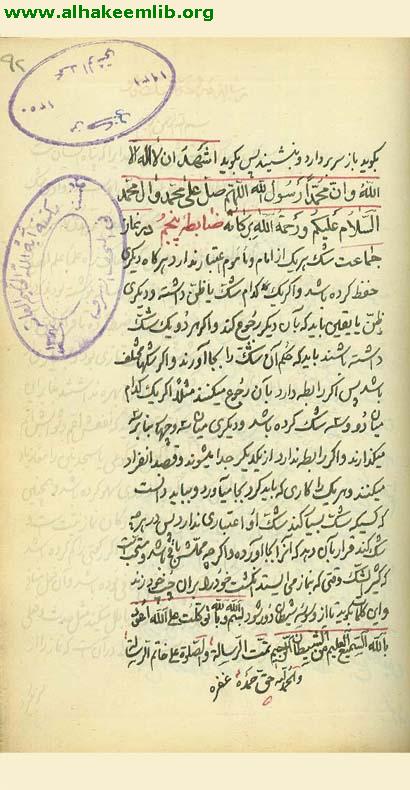 www.alhakeemlib.org
بگوید باز سر بردارد و بنشیند پس بگوید اشهد ان لا اله الا
الله وان محمدا رسول الله اللهم صل علی محمد وال محمد
السلام علیکم ورحمة الله وبرکاته ضابطه پنجم در نماز
جماعت شک هر یک از امام و مأموم اعتبار ندارد هر گاه دیگری
حفظ کرده باشد و اگر یک کدام شک یا ظن داشته و دیگری
ظن یا یقین باید که بآن دیگر رجوع کند و اگر هر دو یک شک
داشته باشند باید که حکم آن شک را بجا آورند و اگر شکها مختلف
باشد پس اگر رابطه دارد بآن رجوع میکنند مثلا اگر یک کدام
میان دو و سه شک کرده باشد و دیگری میان سه و چهار بنا بر سه
میگذارند و اگر رابطه ندارد از یکدیگر جدا میشوند و قصد انفراد
میکنند و هر یک را کاری که باید کرد بجا میآورد و بباید دانست
که کسیکه شک بسیار کند شک او اعتباری ندارد پس در هر چه
شک کند قرار بآن دهد که آنرا بجا آورده و اگر چه محلش باقی باشد و مستحب است
که کثیر الشک وقتی که بنماز می ایستد انگشت خود را بر ران چپ خود زند
و این کلمات بگوید تا از وسوسه شیطان دور شود بسم الله وبالله توکلت علی الله اعوذ
بالله السمیع العلیم من الشیطان الرجیم تمت الرسالة والصلوة علی خاتم الرسالة
والحمد لله حق حمده